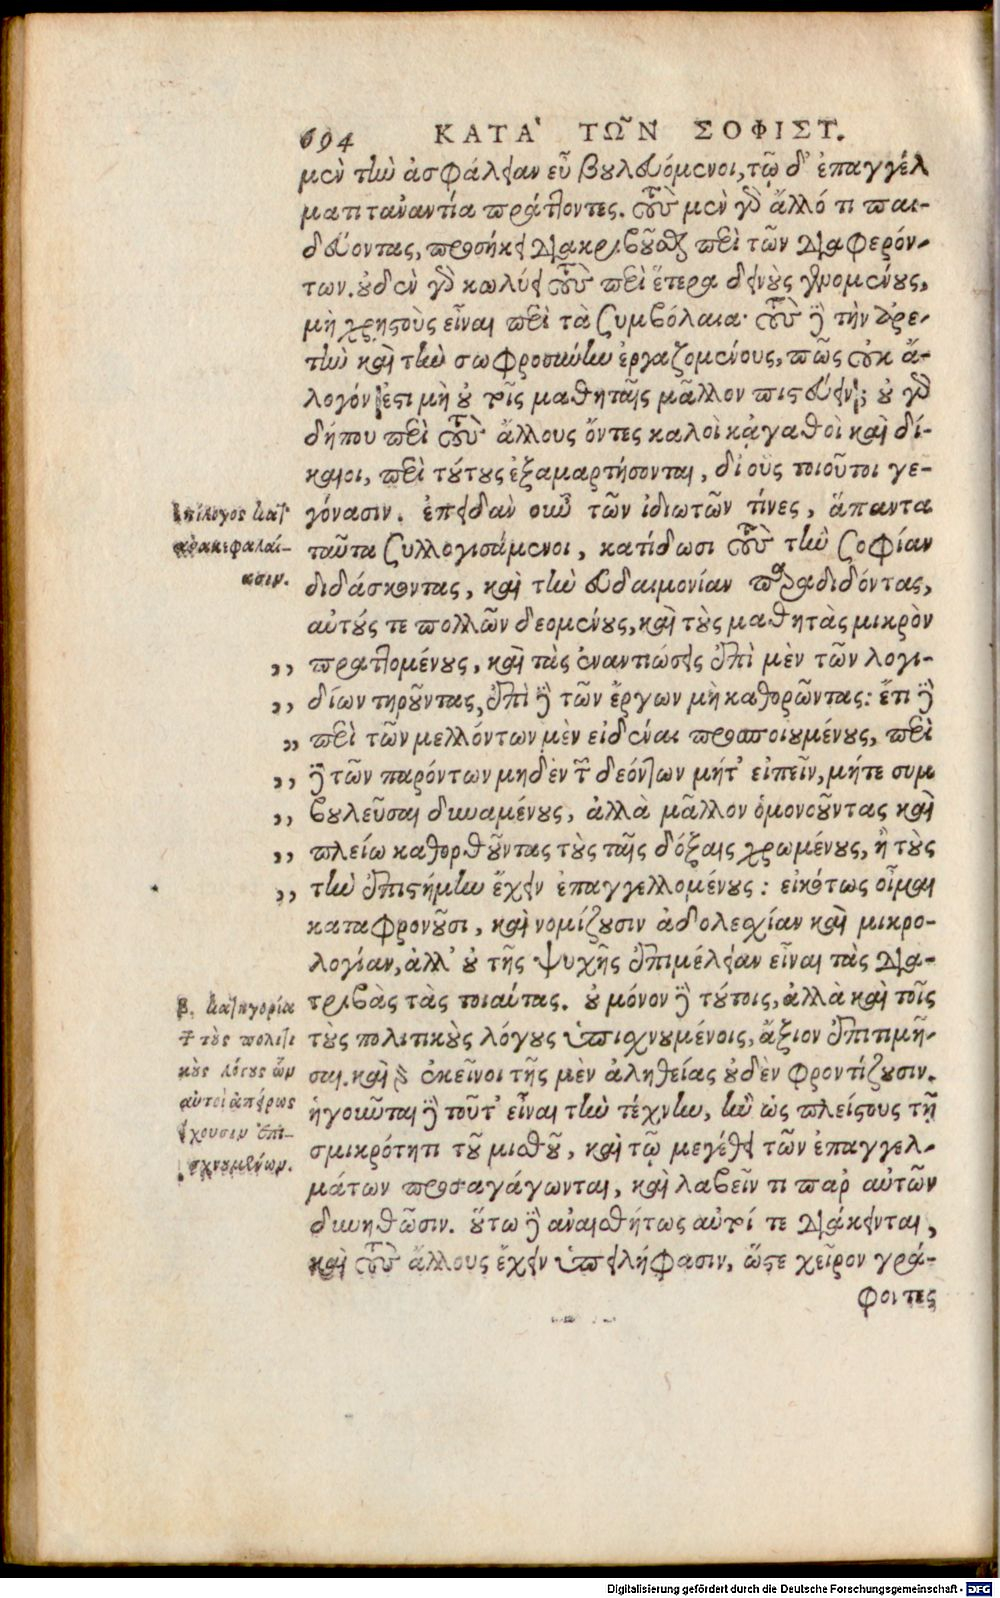 694 ΚΑΤΑ` ΤΩ͂Ν ΣΟΦΙΣΤ.
μὲν τὴν ἀσφάλειαν εὖ βουλευόμενοι, τῷ δ' ἐπαγγέλ
ματι τἀναντία πράττοντες. τοὺς μὲν γὰρ ἄλλό τι παι-
δεύοντας, προσήκει διακριβοῦσθαι περὶ τῶν διαφερόν-
των. οὐδὲν γὰρ κωλύει τοὺς περὶ ἕτερα δεινοὺς γενομένους,
μὴ χρηστοὺς εἶναι περὶ τὰ συμβόλαια· τοὺς δὲ τὴν ἀρε-
τὴν καὶ τὴν σωφροσύνην ἐργαζομένους, πῶς οὐκ ἄ-
λογόν ἐστι μὴ οὐ τοῖς μαθηταῖς μᾶλλον πιστεύειν; οὐ γὰρ
δήπου περὶ τοὺς ἄλλους ὄντες καλοὶ κἀγαθοὶ καὶ δί-
καιοι, περὶ τούτους ἐξαμαρτήσονται, δι' οὓς τοιοῦτοι γε-
γόνασιν. ἐπειδὰν οὖν τῶν ἰδιωτῶν τίνες, ἅπαντα
ταῦτα συλλογισάμενοι, κατίδωσι τοὺς τὴν σοφίαν
διδάσκοντας, καὶ τὴν εὐδαιμονίαν παραδιδόντας,
αὐτούς τε πολλῶν δεομένους, καὶ τοὺς μαθητὰς μικρὸν
,, πραττομένους, καὶ τὰς ἐναντιώσεις ἐπὶ μὲν τῶν λογι-
,, δίων τηροῦντας, ἐπὶ δὲ τῶν ἔργων μὴ καθορῶντας: ἔτι δὲ
,, περὶ τῶν μελλόντων μὲν εἰδέναι προσποιουμένους, περὶ
,, δὲ τῶν παρόντων μηδὲν τῶν δεόντων μήτ' εἰπεῖν, μήτε συμ
,, βουλεῦσαι δυναμένους, ἀλλὰ μᾶλλον ὁμονοοῦντας καὶ
,, πλείω κατορθοῦντας τοὺς ταῖς δόξαις χρωμένους, ἢ τοὺς
,, τὴν ἐπιστήμην ἔχειν ἐπαγγελλομένους: εἰκότως οἶμαι
καταφρονοῦσι, καὶ νομίζουσιν ἀδολεσχίαν καὶ μικρο-
λογίαν, ἀλλ' οὐ τῆς ψυχῆς ἐπιμέλειαν εἶναι τὰς δια-
τριβὰς τὰς τοιαύτας. οὐ μόνον δὲ τούτοις, ἀλλὰ καὶ τοῖς
τοὺς πολιτικοὺς λόγους ὑπισχνουμένοις, ἄξιον ἐπιτιμῆ-
σαι. καὶ γὰρ ἐκεῖνοι τῆς μὲν ἀληθείας οὐδὲν φροντίζουσιν.
ἡγοῦνται δὲ τοῦτ' εἶναι τὴν τέχνην, ἢν ὡς πλείστους τῇ
σμικρότητι τοῦ μισθοῦ, καὶ τῷ μεγέθει τῶν ἐπαγγελ-
μάτων προσαγάγωνται, καὶ λαβεῖν τι παρ' αὐτῶν
δυνηθῶσιν. οὕτω δὲ ἀναισθήτως αὐτοί τε διάκεινται,
καὶ τοὺς ἄλλους ἔχειν ὑπειλήφασιν, ὥστε χεῖρον γρά-
φοντες
Ἐπίλογος κατ'
ἀνακεφαλαί-
ωσιν.
β. Κατηγορία
τῶν τοὺς πολιτι
κοὺς λόγους ὧν
αὐτοὶ ἀπείρως
ἔχουσιν ὑπι-
σχνουμένων.
Digitalisierung gefördert durch die Deutsche Forschungsgemeinschaft - DFG